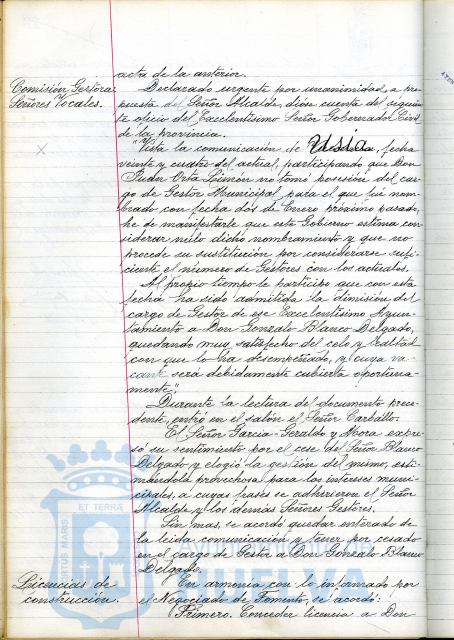 acta de la anterior.
Comisión Gestora:
Señores Vocales.
Declarado urgente por unanimidad, a pro-
puesta del Señor Alcalde, dióse cuenta del siguien-
te oficio del Excelentísimo Señor Gobernador Civil
de la provincia.
"Vista la comunicación de Usia, fecha
veinte y cuatro del actual, participando que Don
Juan Orta Limón no tomó posesión del car-
go de Gestor Municipal para el que fué nom-
brado con fecha dos de Enero próximo pasado,
he de manifestarle que este Gobierno estima con-
siderar nulo dicho nombramiento y que no
procede su sustitución por considerarse sufi-
ciente el número de Gestores con los actuales.
Al propio tiempo le participo que con esta
fecha ha sido admitida la dimisión del
cargo de Gestor de ese Excelentísimo Ayun-
tamiento a Don Gonzalo Blanco Delgado,
quedando muy satisfecho del celo y lealtad
con que lo ha desempeñado, y cuya va-
cante será debidamente cubierta oportuna-
mente".
Durante la lectura del documento prece-
dente, entró en el salón el Señor Carballo.
El Señor García-Geraldo y Mora expre-
só su sentimiento por el cese del Señor Blanco
Delgado y elogió la gestión del mismo, esti-
mándola provechosa para los intereses muni-
cipales, a cuyas frases se adhirieron el Señor
Alcalde y los demás Señores Gestores.
Sin mas, se acordó quedar enterado de
la leida comunicación y tener por cesado
en el cargo de Gestor a Don Gonzalo Blanco
Delgado.
Licencias de
construcción.
En armonía con lo informado por
el Negociado de Fomento, se acordó:
Primero. Conceder licencia a Don
ET TERRA
PORTUS MARIS